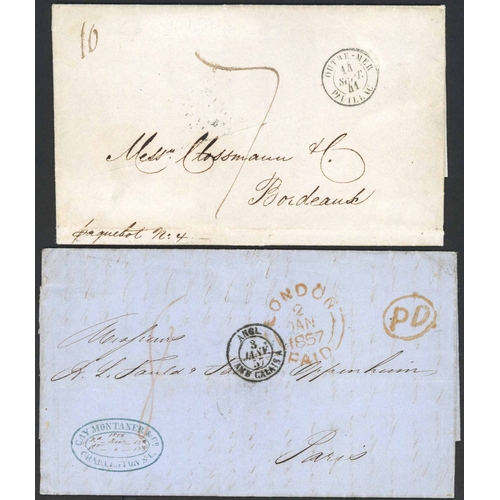 16
7
OUTRE-MER
14
SEPT.
41
PAUILLAC
Messrs Clossmann & Co.
Bordeaux
paquebot No. 4
LONDON
2
JAN
1857
PAID
PD
ANGL.
3
JANV.
57
AMB. CALAIS A
Messieurs
Oppenheim
Paris
CAY MONTANER & Co
CHARLESTON S.C.